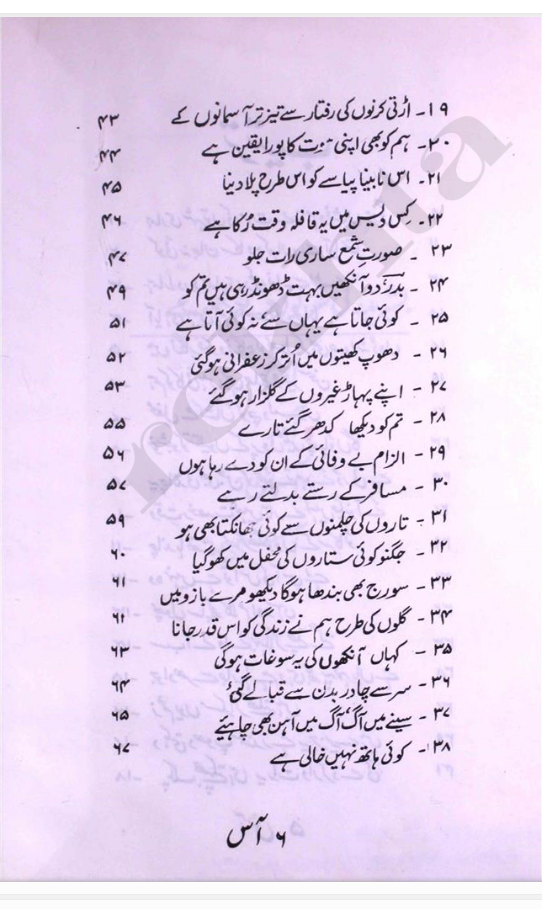 ۱۹۔ اڑتی کرنوں کی رفتار سے تیز تر آسمانوں کے ۴۳
۲۰۔ ہم کو بھی اپنی موت کا پورا یقین ہے ۴۴
۲۱۔ اس نابینا پیاسے کو اس طرح پلا دینا ۴۵
۲۲۔ کس دیس میں یہ قافلہ وقت رُکا ہے ۴۶
۲۳ ۔ صورتِ شمع ساری رات جلو ۴۷
۲۴ ۔ بدرؔ دو آنکھیں بہت ڈھونڈ رہی ہیں تم کو ۴۹
۲۵ ۔ کوئی جاتا ہے یہاں سے نہ کوئی آتا ہے ۵۱
۲۶ ۔ دھوپ کھیتوں میں اُتر کر زعفرانی ہو گئی ۵۲
۲۷ ۔ اپنے پہاڑ غیروں کے گلزار ہو گئے ۵۳
۲۸ ۔ تم کو دیکھا کدھر گئے تارے ۵۵
۲۹ ۔ الزام بے وفائی کے ان کو دے رہا ہوں ۵۶
۳۰ ۔ مسافر کے رستے بدلتے رہے ۵۷
۳۱ ۔ تاروں کی چلمنوں سے کوئی جھانکتا بھی ہو ۵۹
۳۲ ۔ جگنو کوئی ستاروں کی محفل میں کھو گیا ۶۰
۳۳ ۔ سورج بھی بندھا ہوگا دیکھو مرے بازو میں ۶۱
۳۴ ۔ گلوں کی طرح ہم نے زندگی کو اس قدر جانا ۶۱
۳۵ ۔ کہاں آنکھوں کی یہ سوغات ہوگی ۶۳
۳۶ ۔ سر سے چادر بدن سے قبا لے گئی ۶۴
۳۷ ۔ سینے میں آگ، آگ میں آہن بھی چاہیئے ۶۵
۳۸۔ کوئی ہاتھ نہیں خالی ہے ۶۷
۶ آس
rekhta